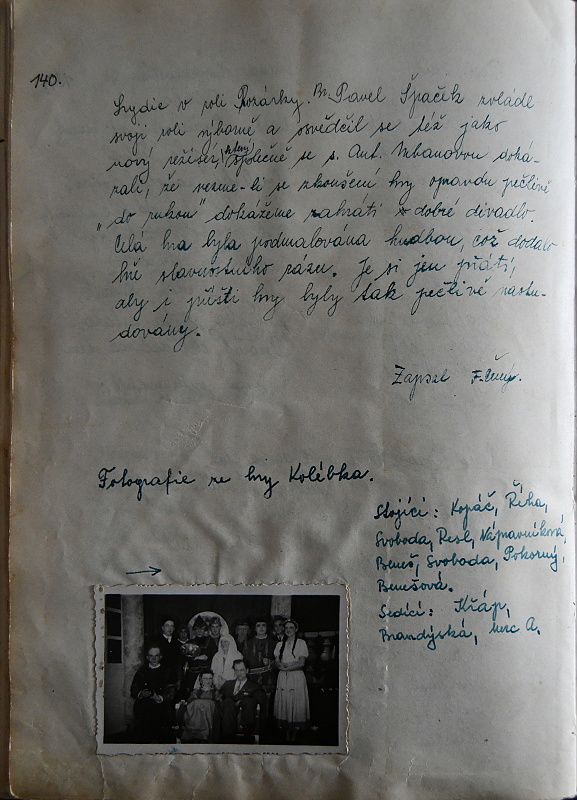 140.
hrydie v roli Rozárky. Br. Pavel Špačik zvládl
svoji roli výborně a osvědčil se též jako
nový režisér, který společně se s. Ant. Urbanovou doká-
zali, že vezme-li se zkoušení hry opravdu pečlivě
„do rukou" dokážeme zahráti dobré divadlo.
Celá hra byla podmalována hudbou, což dodalo
hře slavnostního rázu. Je si jen přáti,
aby i příští hry byly tak pečlivě nastu-
dovány.
Zapsal F. Černý.
Fotografie ze hry Kolébka.
Stojící: Kopáč, Říha,
Svoboda, Resl, Nápravníková,
Beneš, Svoboda, Pokorný,
Benešová.
Sedící: Křáp,
Brandýská, A.